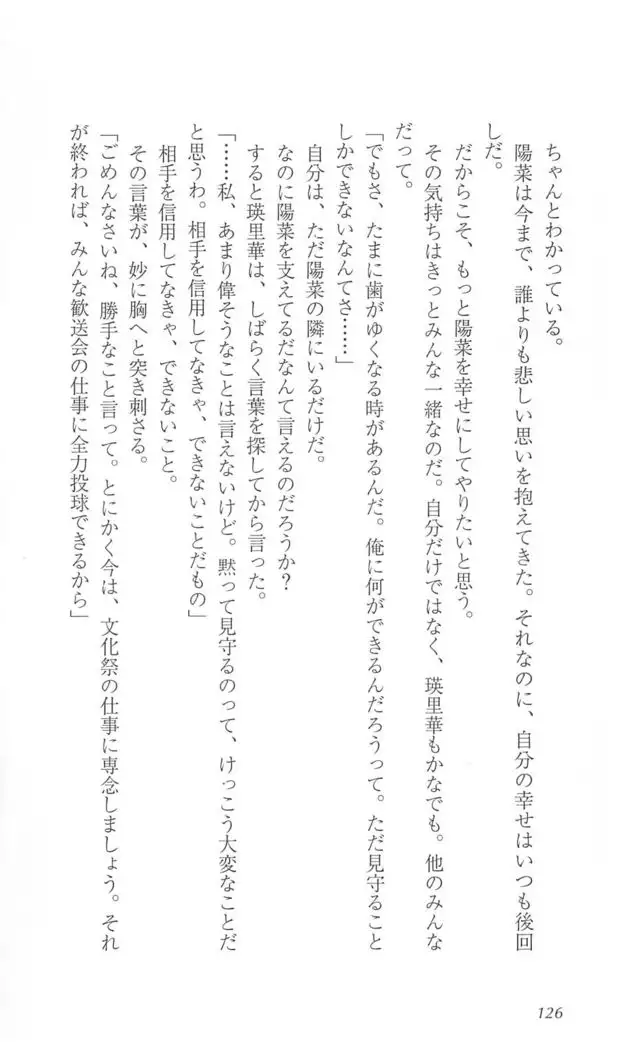 ちゃんとわかっている。
陽菜は今まで、誰よりも悲しい思いを抱えてきた。それなのに、自分の幸せはいつも後回
しだ。
だからこそ、もっと陽菜を幸せにしてやりたいと思う。
その気持ちはきっとみんな一緒なのだ。自分だけではなく、瑛里華もかなでも。他のみんな
だって。
「でもさ、たまに歯がゆくなる時があるんだ。俺に何ができるんだろうって。ただ見守ること
しかできないなんてさ……」
自分は、ただ陽菜の隣にいるだけだ。
なのに陽菜を支えてるだなんて言えるのだろうか?
すると瑛里華は、しばらく言葉を探してから言った。
「……私、あまり偉そうなことは言えないけど。黙って見守るのって、けっこう大変なことだ
と思うわ。相手を信用してなきゃ、できないことだもの」
相手を信用してなきゃ、できないこと。
その言葉が、妙に胸へと突き刺さる。
「ごめんなさいね、勝手なこと言って。とにかく今は、文化祭の仕事に専念しましょう。それ
が終われば、みんな歓送会の仕事に全力投球できるから」
126